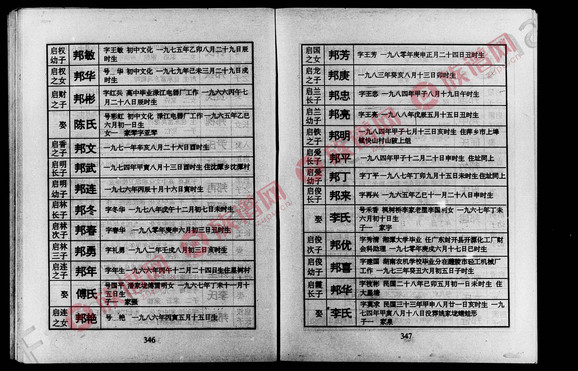 启权幼子
邦敏
字王敏 初中文化 一九七五年乙卯八月二十九日辰时生
启权之女
邦华
号华 初中文化 一九七九年己未三月二十九日戌时生
启财之子
邦彬
字红兵 高中毕业渌江电器厂工作 一九六六丙午七月二十八日辰时生
娶
陈氏
号彩虹 初中文化 渌江电器厂工作 一九六五年乙巳六月初一日生
女一 家琴字亚琴
启香之子
邦文
一九七一年辛亥八月二十六日酉时生
启明长子
邦武
一九七四年甲寅八月十三日酉时生 住沈潭乡潭村
启明幼子
邦连
一九七六年丙辰十月十六日寅时生
启林长子
邦冬
字冬华 一九七八年戊午十二月初七日未时生
启林次子
邦春
字春华 一九八零年庚申六月初三日生
启林三子
邦勇
字礼勇 一九八二年壬戌八月初三日亥时生
启连之子
邦年
字年生 一九六六年丙午十二月二十四日生 住星树村
娶
傅氏
号国平 潘家垅傅富明女 一九六七年丁未十一月十五日生
子一 家强
启连之女
邦艳
号艳 一九八六年丙寅五月十五日生
346
启国之女
邦芳
字王芳 一九八零年庚申正月二十四日丑时生
启龙之子
邦庚
一九八三年癸亥八月十三日卯时生
启兰长子
邦忠
字王忠 一九八四年甲子八月十九日午时生
启兰幼子
邦亮
字王亮 一九八八年戊辰五月十五日丑时生
启铁之子
邦明
一九八四年甲子七月十三日亥时生 住萍乡市上埠镇快山村山陂上组
启爱长子
邦平
一九八四年甲子十二月二十日申时生 住址同上
启爱幼子
邦丁
字丁平 一九八七年丁卯九月十五日未时生 住址同上
启俊长子
邦来
字再兴 一九六五年乙巳十一月二十八日申时生
娶
李氏
号未香 枫树桥李家老屋李国利女 一九六七年丁未六月初十日生
子一 家宇
启俊次子
邦优
字秀清 湘潭大学毕业 任广东封开县开源化工厂财会科助理 一九七零年庚戌六月十七日巳时生
启俊幼子
邦喜
字建国 湖南农机学校毕业分在醴陵市轻工机械厂工作 一九七三年癸丑六月初五日子时生
启霞长子
邦华
字牧彬 民国二十八年己卯五月初一日未时生 住大塘埔
娶
李氏
字莫求 民国三十三年甲申八月廿一日亥时生 一九七四年甲寅八月十八日没葬姚家垅蟠蛇形
子一 家景
347